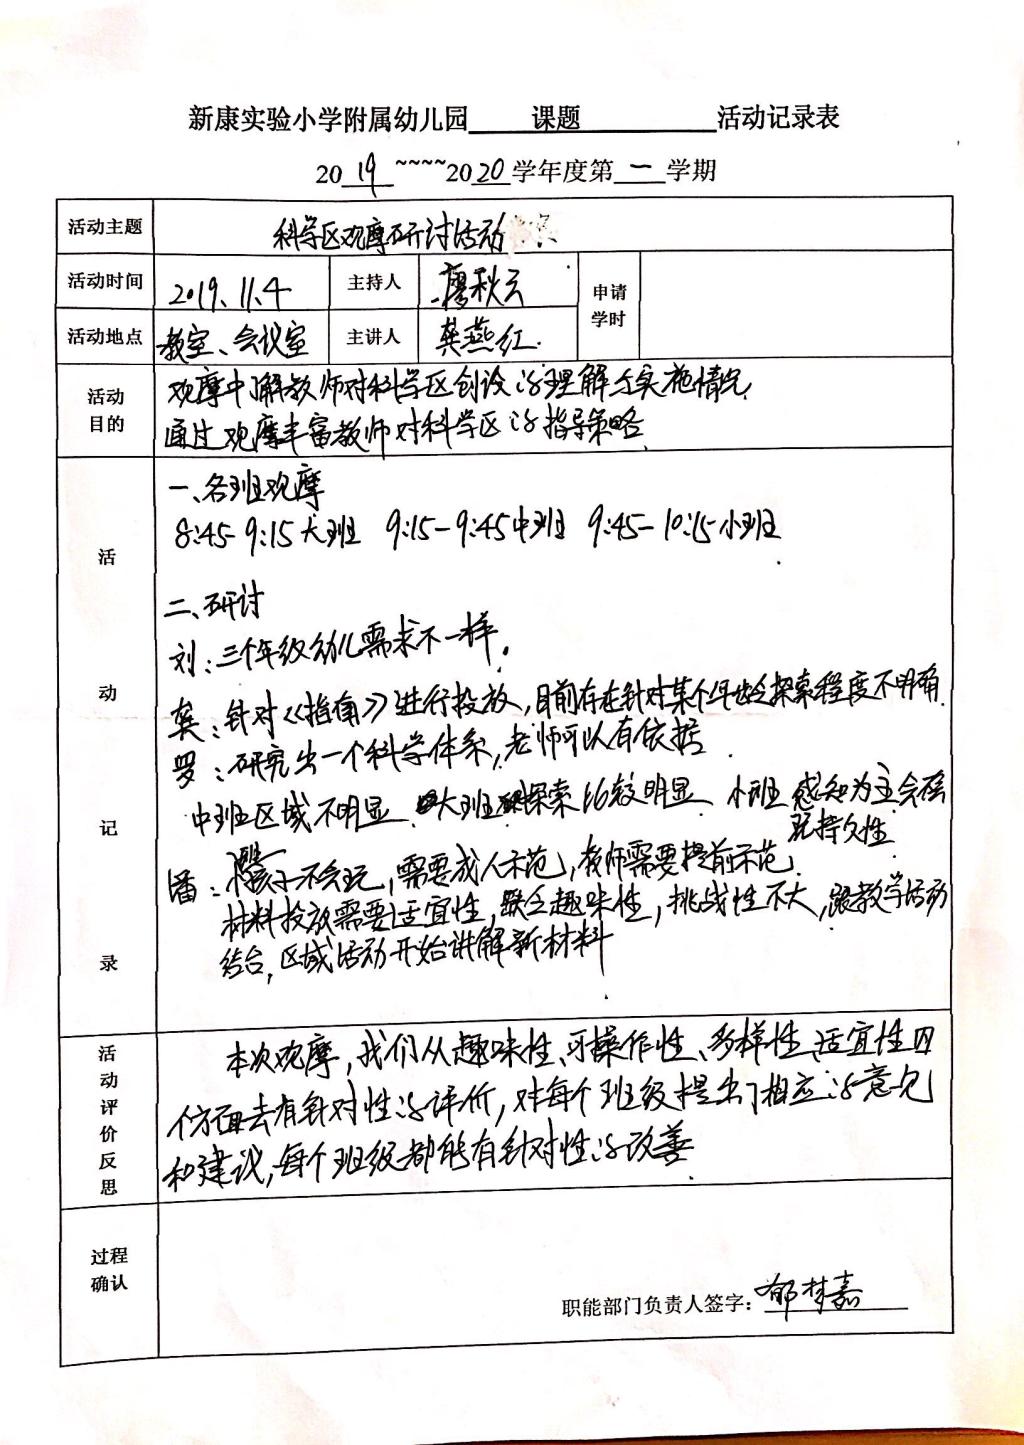 新康实验小学附属幼儿园 课题 活动记录表
2019~~~~2020学年度第一学期
活动主题 科学区观摩研讨活动
活动时间 2019.11.4 主持人 廖秋云 申请学时
活动地点 教室、会议室 主讲人 龚燕红
活动目的
观摩中了解教师对科学区创设的理解与实施情况
通过观摩丰富教师对科学区的指导策略
活动记录
一、各班观摩
8:45-9:15大班 9:15-9:45中班 9:45-10:15小班
二、研讨
刘:三个年级幼儿需求不一样。
龚:针对《指南》进行投放,目前存在针对某个年龄探索程度不明确
罗:研究出一个科学体系,老师可以有依据
中班区域不明显 大班探索比较明显 小班感知为主会
玩持久性
潘:孩子不会玩,需要成人示范,教师需要提前示范
材料投放需要适宜性,缺乏趣味性,挑战性不大,跟教学活动
结合,区域活动开始讲解新材料
活动评价反思
本次观摩,我们从趣味性、可操作性、多样性、适宜性四
个方面去有针对性的评价,对每个班级提出了相应的意见
和建议,每个班级都能有针对性的改善
过程确认
职能部门负责人签字:郁梦嘉